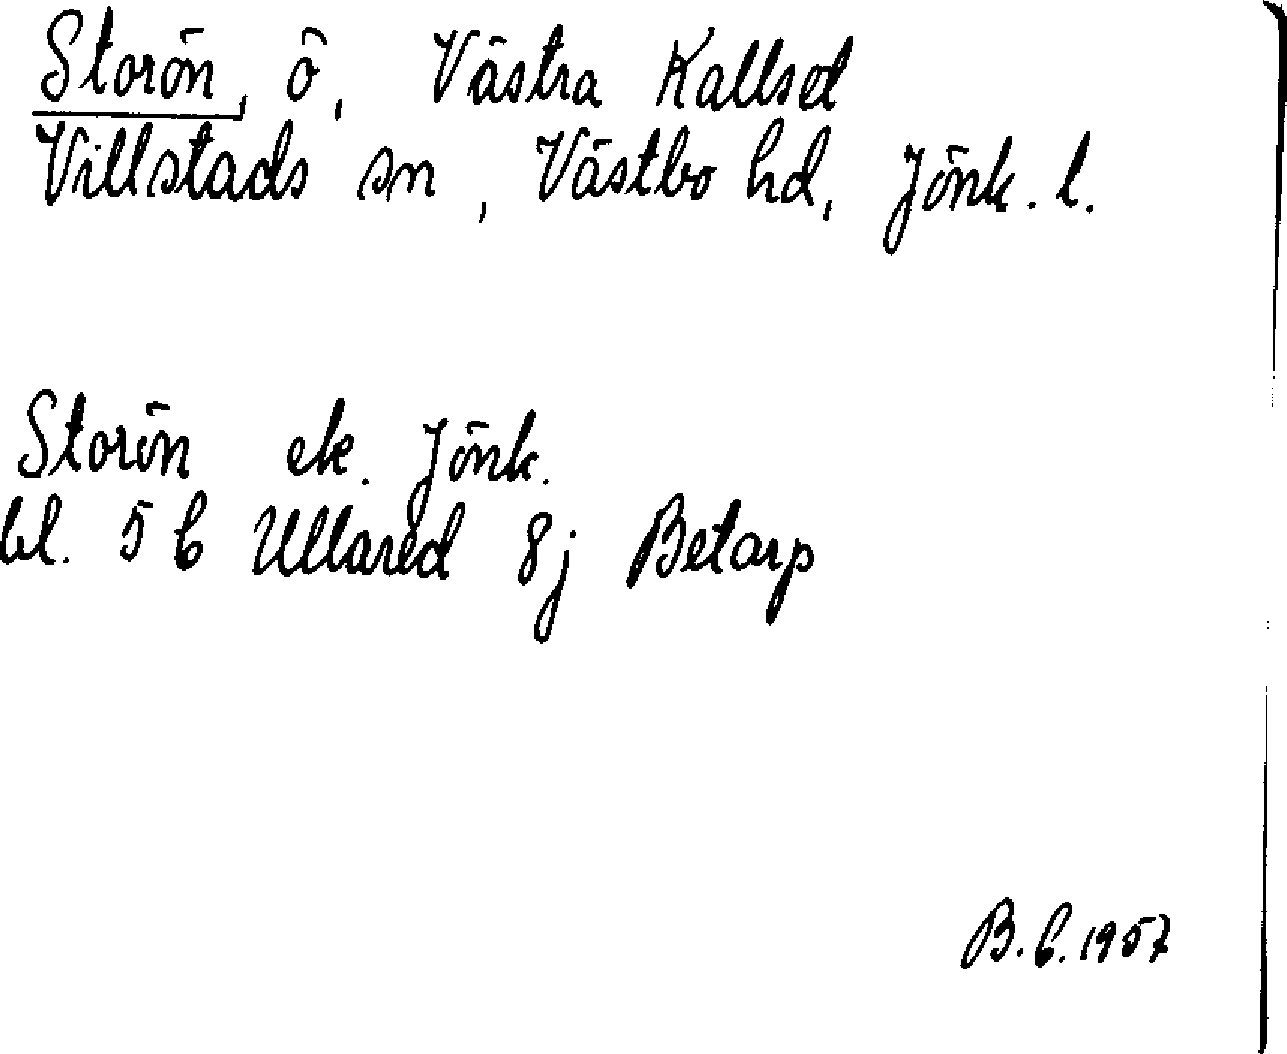 Storön, ö, Västra Kallset
Villstads sn, Västbo hd, Jönk. l.
Storön ek. Jönk.
bl. 5 C Ullared 8j Betarp
B.C. 1957